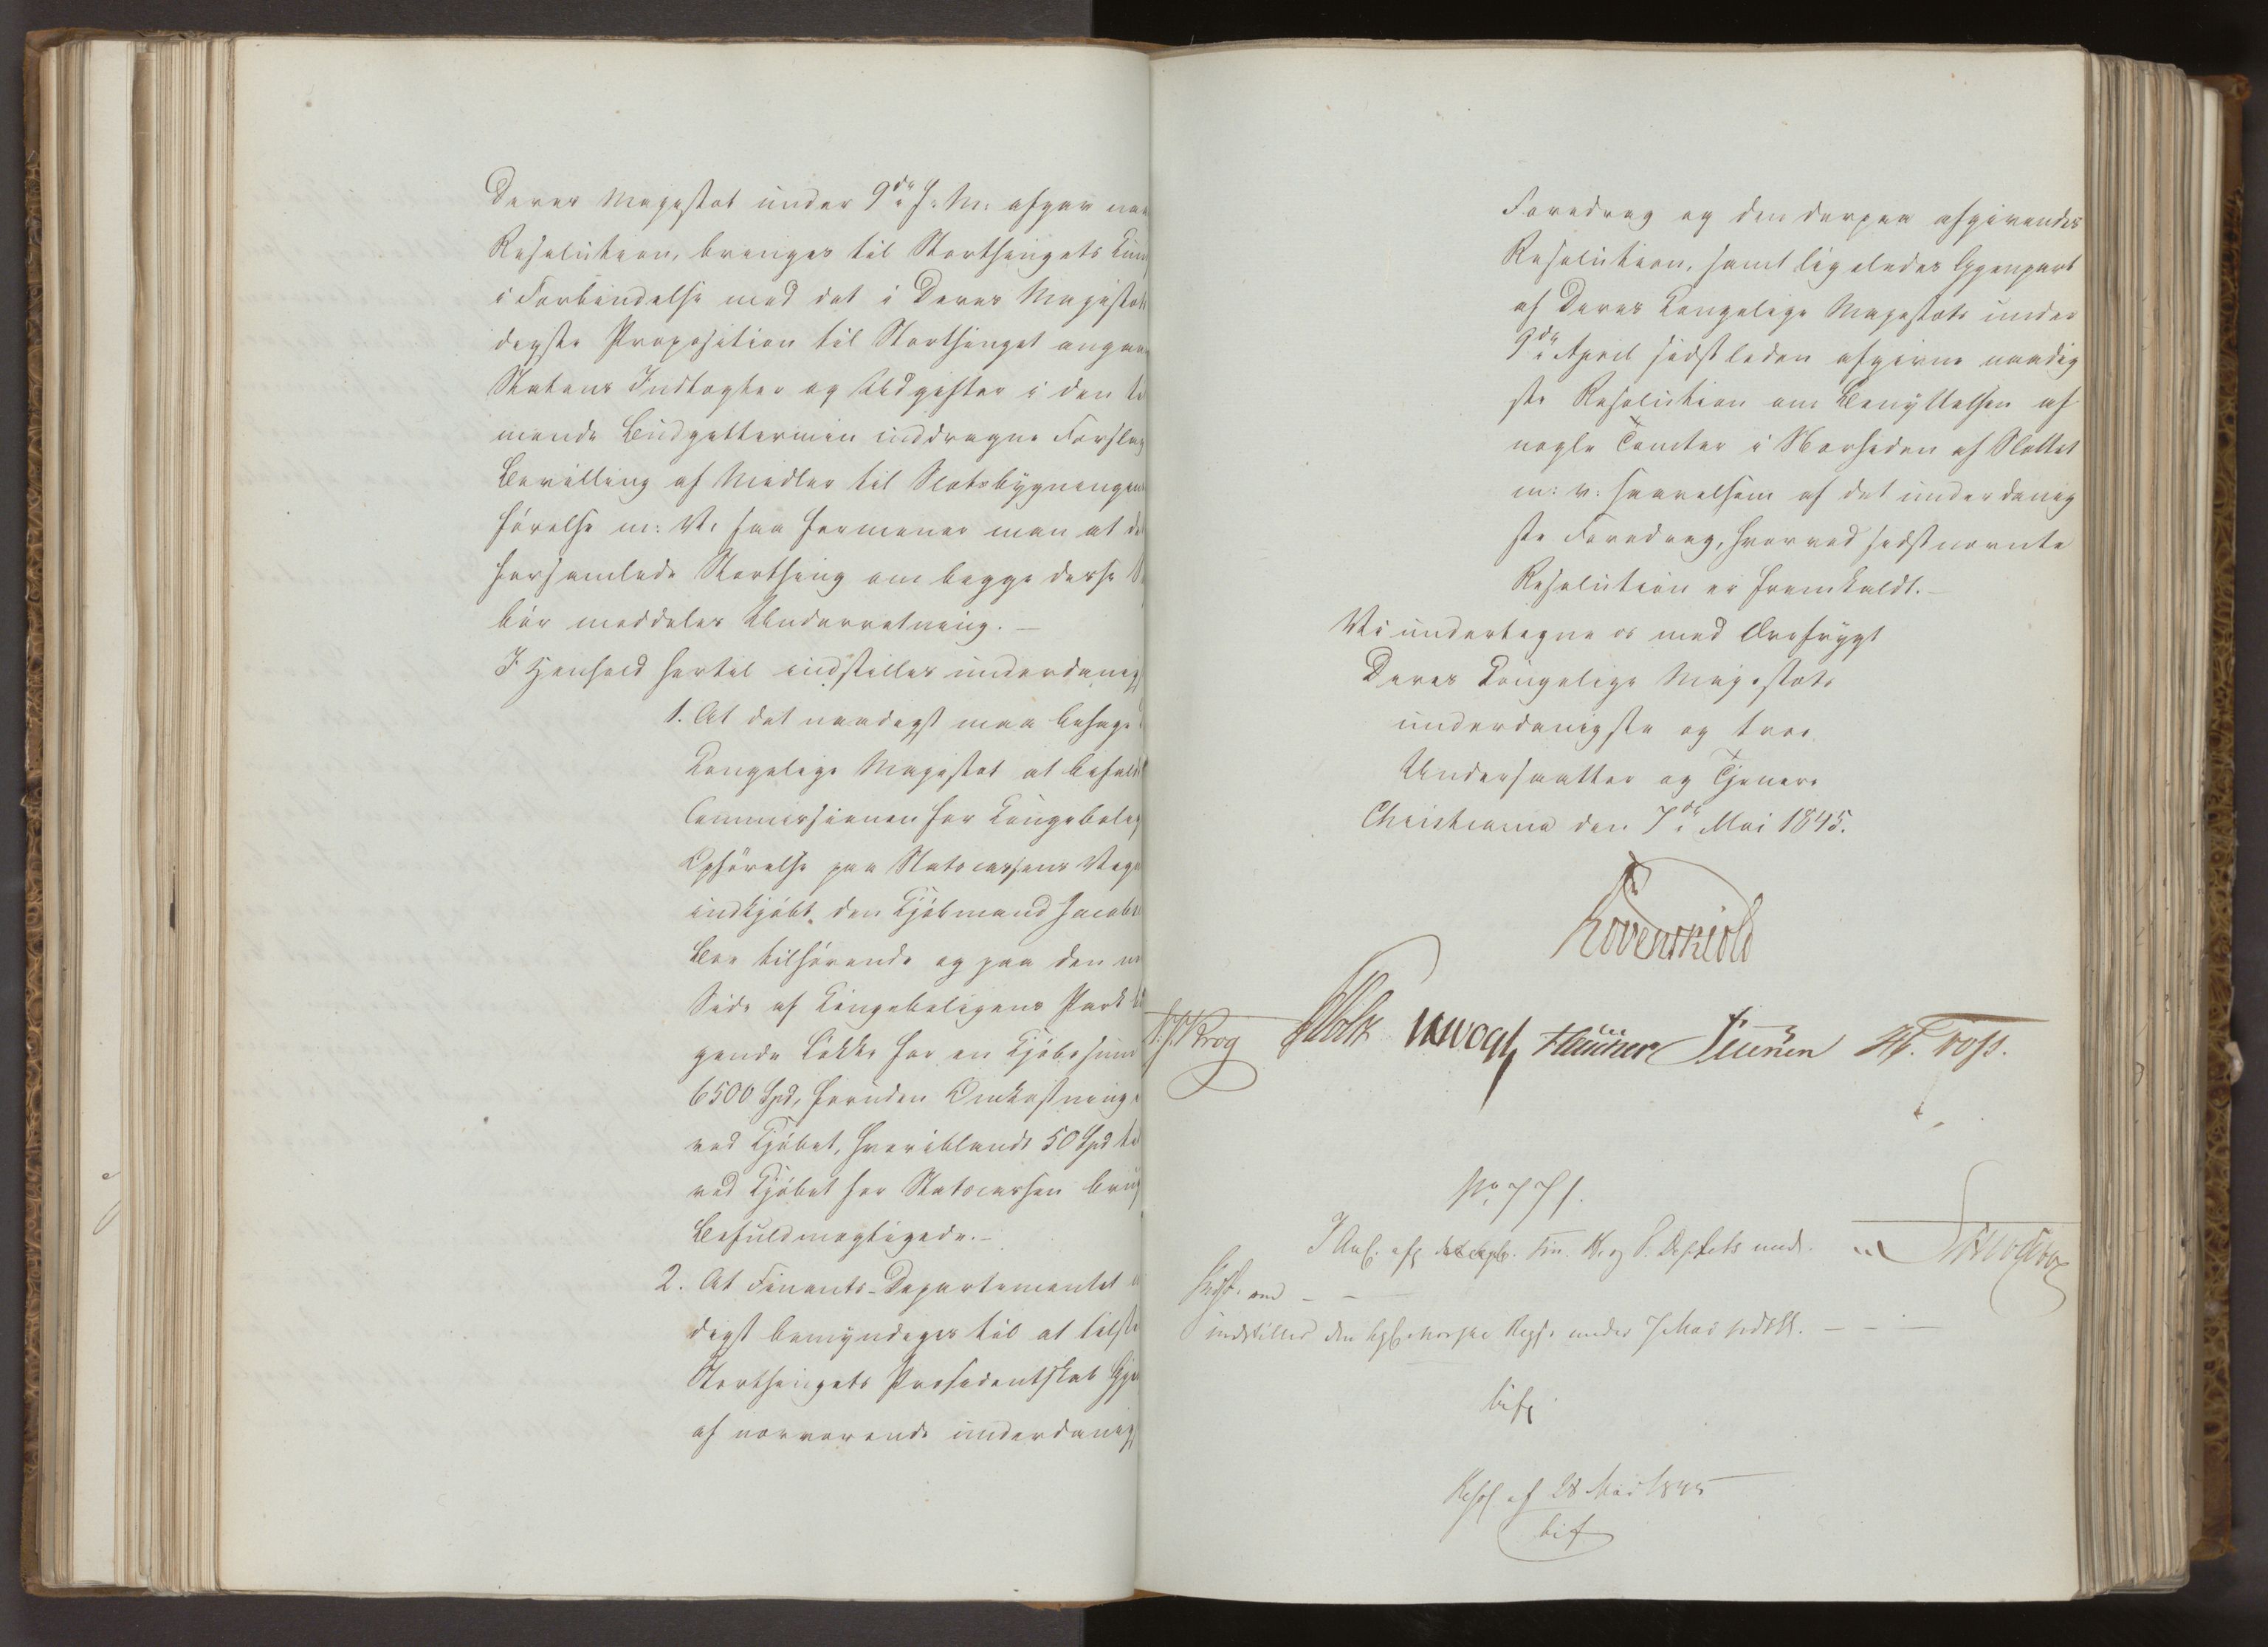 Deres Majestæt under 9de f. M. afgav naa
Resolution, bringes til Storthingets Kund
i Forbindelse med det i Deres Majestæts
digste Proposition til Storthinget angaae
Statens Indtægter og Udgifter i den
mende Budgettermin inddragne Forslag
Bevilling af Midler til Slotsbygningens
førelse m: V: saa formener man at de
forsamlede Storthing om begge disse
bør meddeles Underretning. —
I Henhold hertil indstilles underdanigst
1. At det naadigst maa behage
Kongelige Majestæt at befale
Commissionen for Kongebolig
Opførelse paa Statscassens Vegne
indkjøbt den Kjøbmand Jacob
Boe tilhørende og paa den
Side af Kongeboligens Park
gende Løkke for en Kjøbesum
6500 Spd, foruden Omkostninge
ved Kjøbet, hvoriblandt 50 Spd
ved Kjøbet for Statscassen brug
Befuldmægtigede. —
2. At Finants-Departementet
digst bemyndiges til at tilstille
Storthingets Præsidentskab Gjen
af nærværende underdanigst
Foredrag og den derpaa afgivendes
Resolution, samt ligeledes Gjenpart
af Deres Kongelige Majestæts under
9de April sidstleden afgivne naadig
ste Resolution om Benyttelsen af
nogle Tomter i Nærheden af Slottet
m: v: saavelsom af det underdanig
ste Foredrag, hvorved sidstnævnte
Resolution er fremkaldt. —
Vi undertegne os med Ærefrygt
Deres Kongelige Majestæts
underdanigste og troe
Undersaatter og Tjenere
Christiania den 7de Mai 1845.
Løvenskiold
Krog Holst Vogt Petersen Voss.
No 771.
I Anl. af
indstilles den norske Regj. under 7 Mai sidstl. —
bif.
Resol af 28 Mai 1845
bif